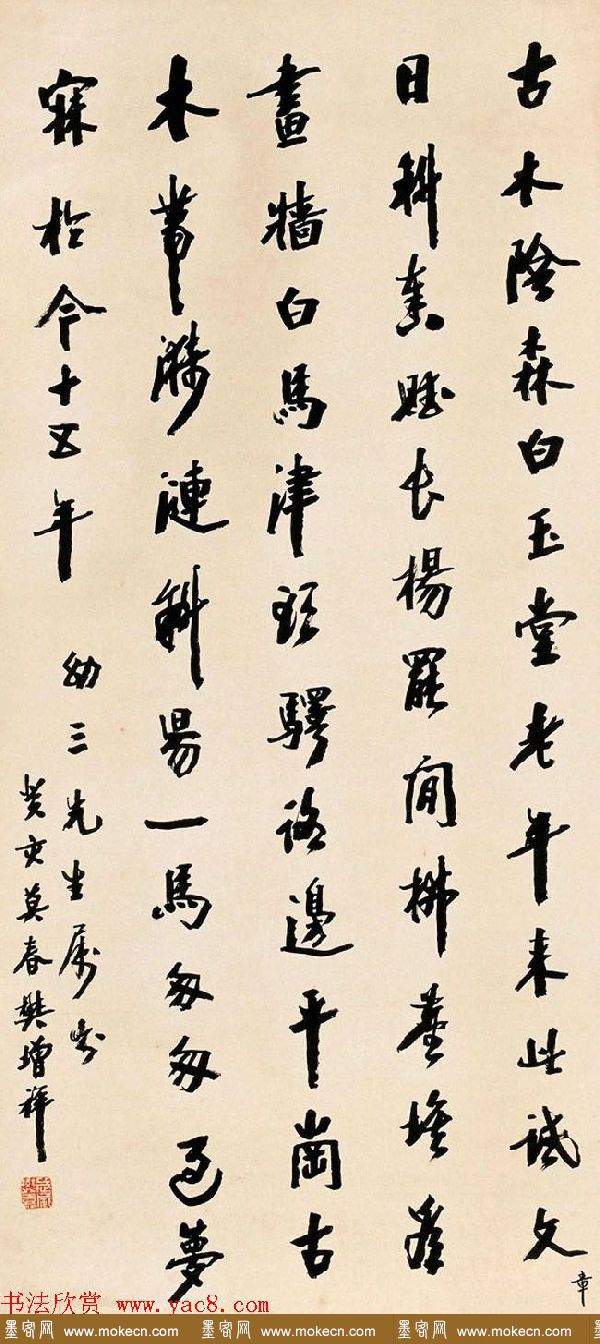 古木陰森白玉堂老年來此試文章
日斜奏賦長楊罷閒拂塵埃看
畫牆白馬津頭驛路邊平崗古
木帶漪漣斜昜一馬匆匆過夢
寐於今十五年
幼三先生屬
癸亥莫春樊增祥
书法欣赏 www.yac8.com
墨客网 www.mokecn.com 墨客网 www.mokecn.com 墨客网 www.mokecn.com 墨客网